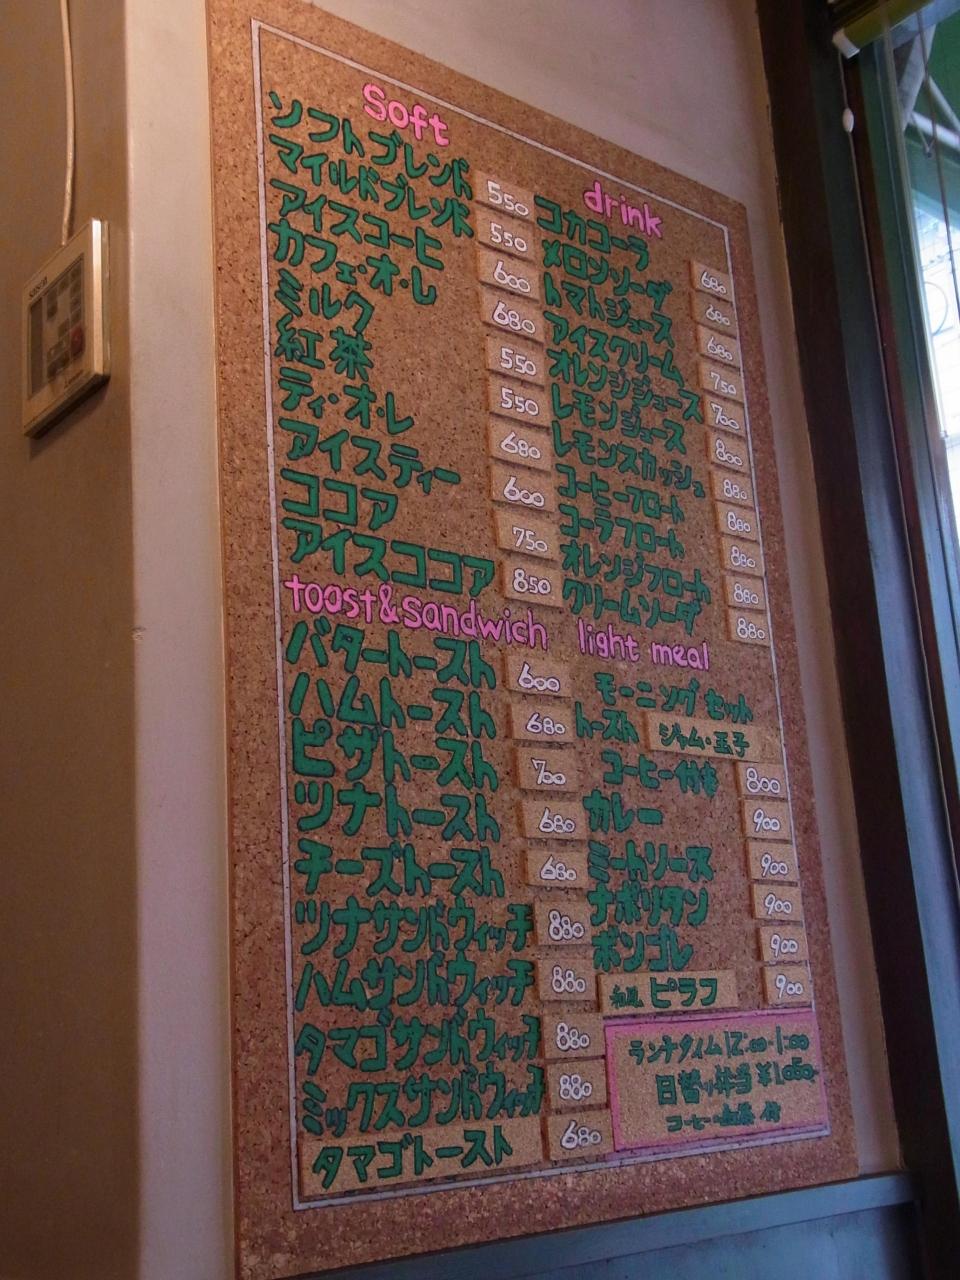 Soft
ソフトブレンド 550
マイルドブレンド 550
アイスコーヒ 600
カフェ・オ・レ 680
ミルク 550
紅茶 550
ティ・オ・レ 680
アイスティー 600
ココア 750
アイスココア 850
drink
コカコーラ 680
メロンソーダ 680
トマトジュース 680
アイスクリーム 750
オレンジジュース 700
レモンジュース 800
レモンスカッシュ 880
コーヒーフロート 880
コーラフロート 880
オレンジフロート 880
クリームソーダ 880
toast&sandwich
バタートースト 600
ハムトースト 680
ピザトースト 700
ツナトースト 680
チーズトースト 680
ツナサンドウィッチ 880
ハムサンドウィッチ 880
タマゴサンドウィッチ 880
ミックスサンドウィッチ 880
タマゴトースト 680
light meal
モーニングセット
トースト ジャム・玉子
コーヒー付き 800
カレー 900
ミートソース 900
ナポリタン 900
ボンゴレ 900
和風ピラフ 900
ランチタイム12:00-1:00
日替り弁当¥1,050
コーヒー・紅茶 付